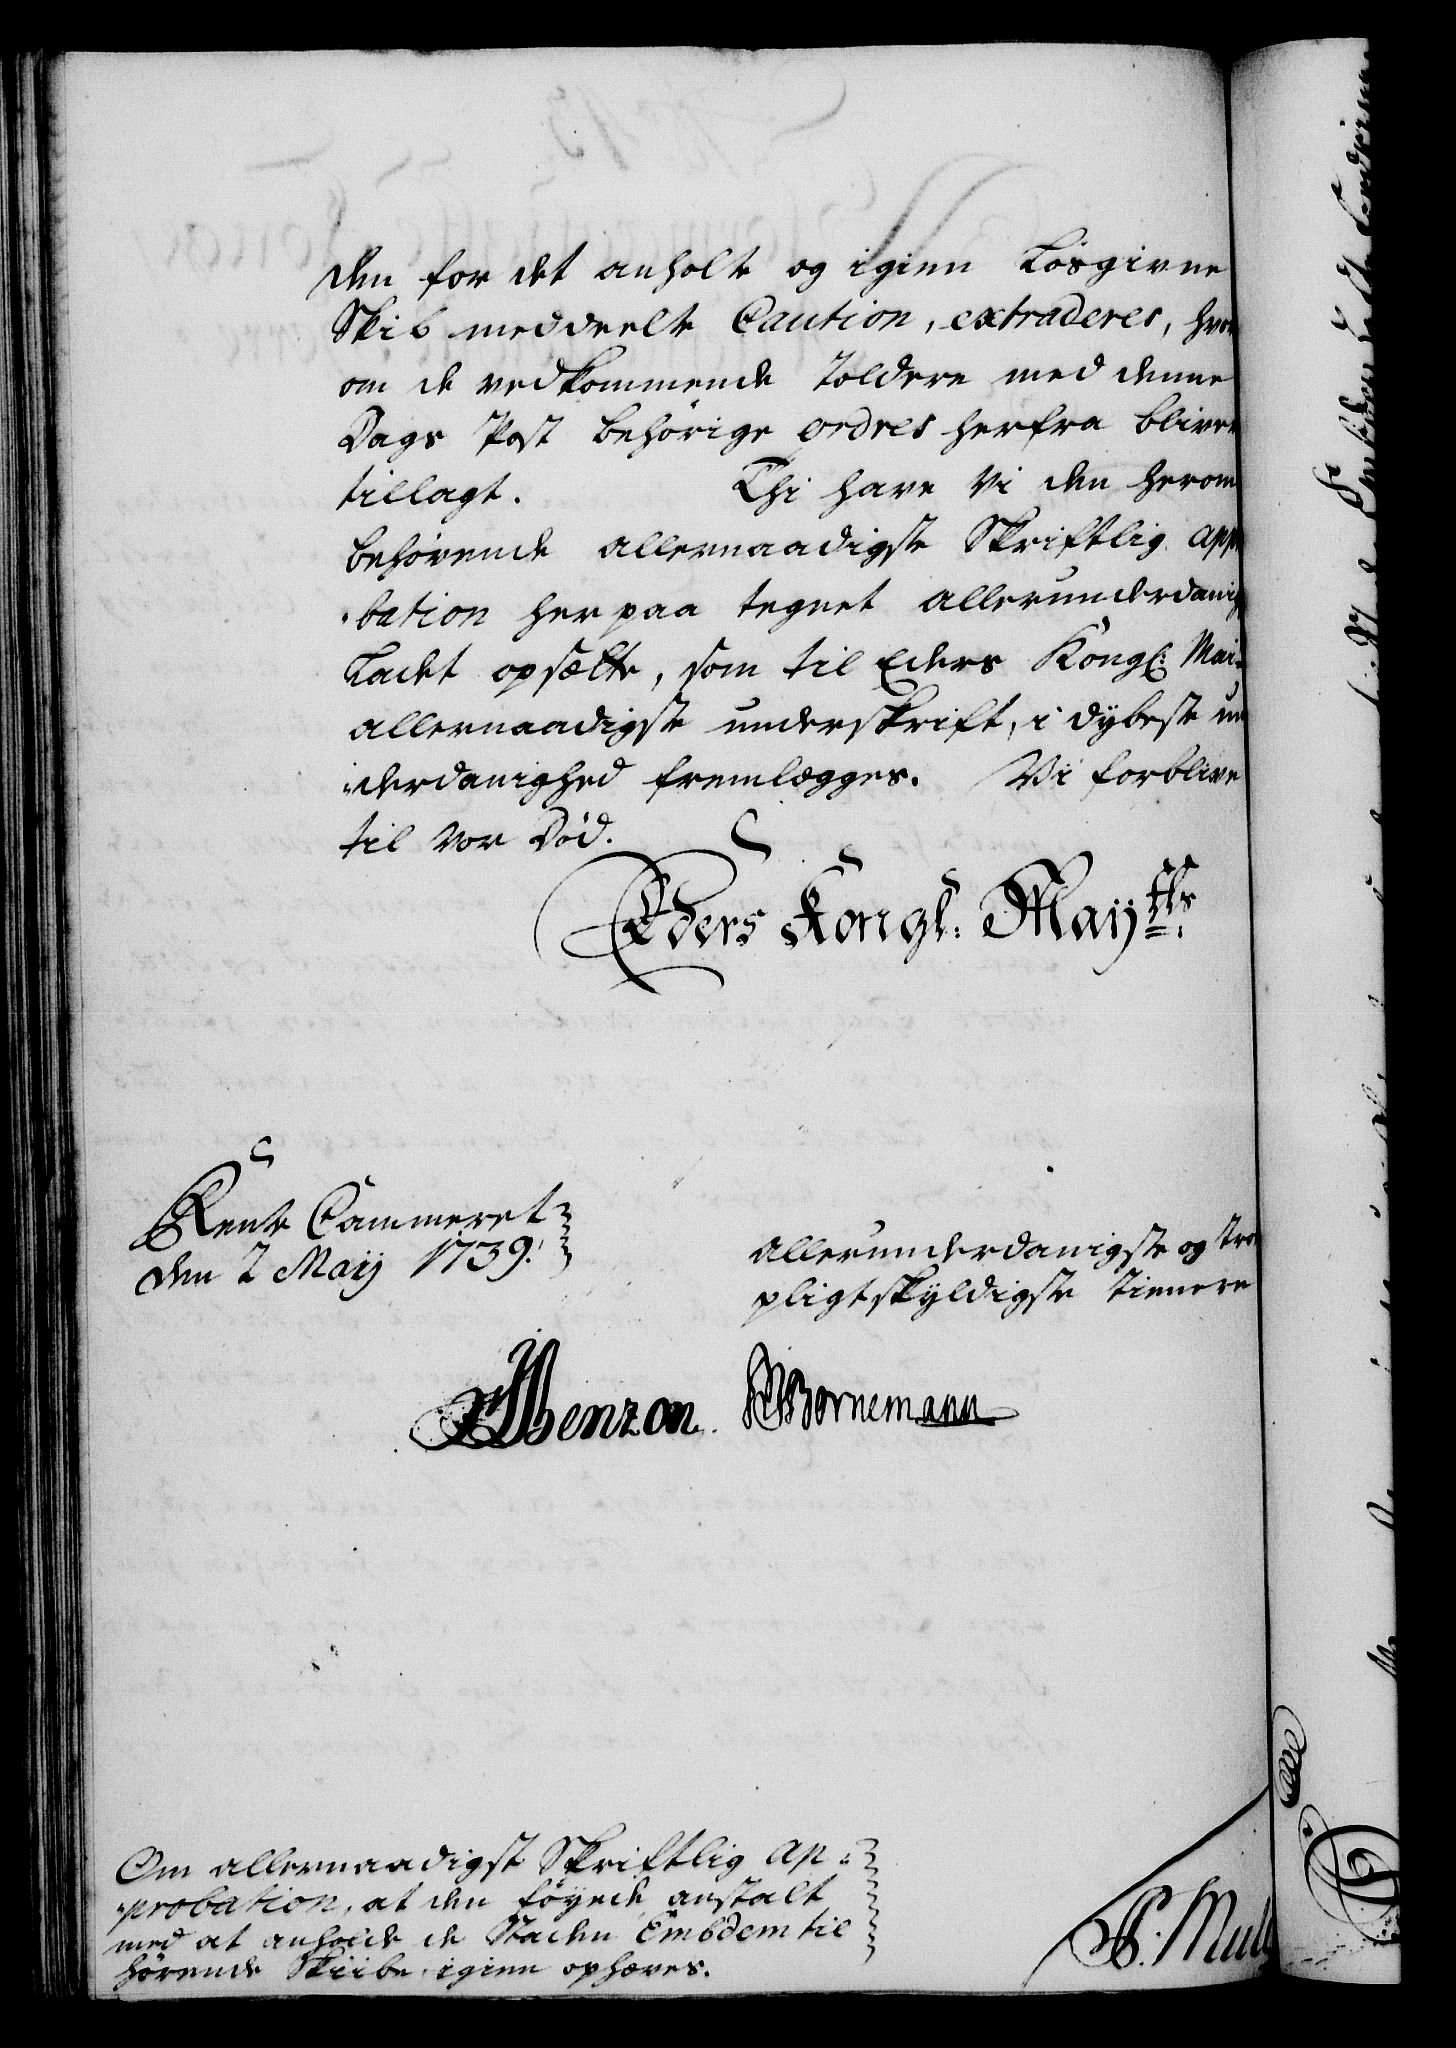 den for det anholte og igien Løsgivne
Skib meddeelte Caution, extraderes, hvor
om de vedkommende Toldere med denne
Dags Post behørige ordres herfra bliver
tillagt. Thi have Vi den herom
behørende allernaadigste Skriftlig app
bation her paa tegnet allerunderdanigst
Ladet opsætte, som til Eders Kongl: Mai
allernaadigste underskrift, i dybeste un
derdanighed fremlægges. Vi forblive
til vor Død.
Eders Kongl: Maijtts.
Rente Cammeret
den 2 Maij 1739.
allerunderdanigste og tro
pligtskyldigste tienere
Benzon. Bornemann
Om allernaadigst Skriftlig Ap-
probation, at den føyede anstalt
med at anholde de Staden Embden til
hørende Skiibe igien ophæves.